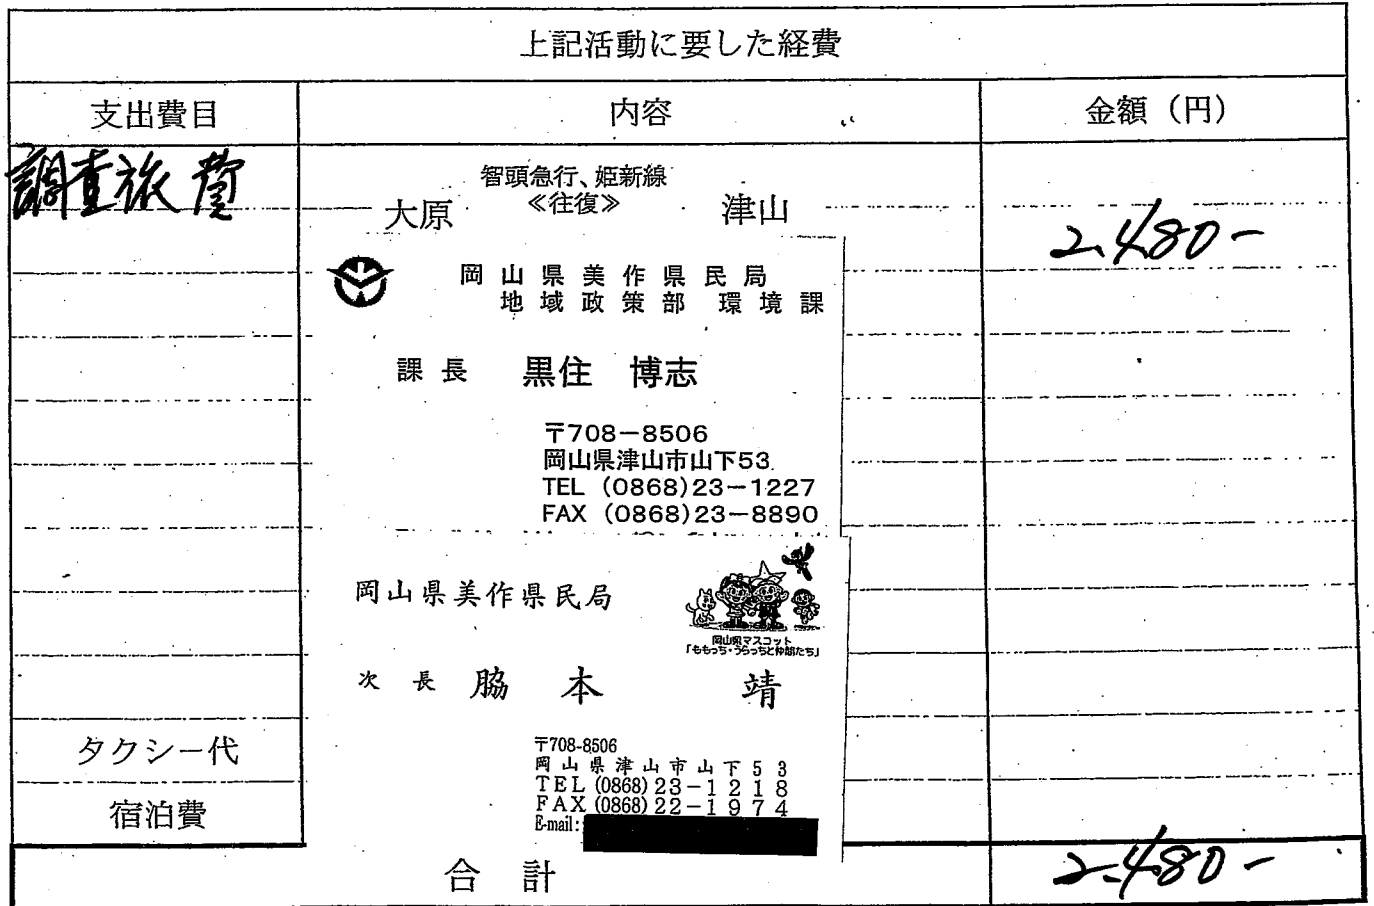 上記活動に要した経費
支出費目 内容 金額（円）
調査旅費
智頭急行、姫新線
大原 ≪往復≫ 津山
2,480-
岡山県美作県民局
地域政策部 環境課
課長 黒住 博志
〒708－8506
岡山県津山市山下53
TEL (0868)23－1227
FAX (0868)23－8890
岡山県美作県民局
岡山県マスコット
「ももっち・うらっちと仲間たち」
次長 脇本 靖
〒708-8506
岡山県津山市山下53
TEL (0868) 23－1218
FAX (0868) 22－1974
E-mail:
タクシー代
宿泊費
合計 2,480-